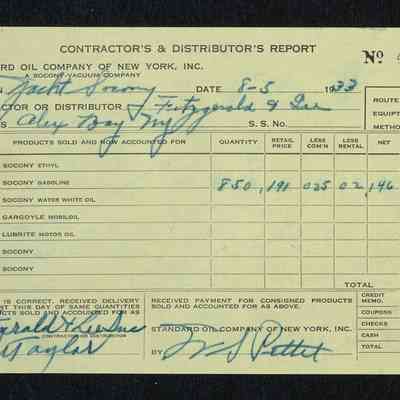 CONTRACTOR'S & DISTRIBUTOR'S REPORT
RD OIL COMPANY OF NEW YORK, INC. Nº
A SOCONY-VACUUM COMPANY
Yacht Socony DATE 8-5 1933
CTOR OR DISTRIBUTOR Fitzgerald & Lee ROUTE
S Alex Bay Ny S. S. No. EQUIP
METHO
PRODUCTS SOLD AND NOW ACCOUNTED FOR QUANTITY RETAIL PRICE LESS COM'N LESS RENTAL NET
SOCONY ETHYL
SOCONY GASOLINE 850 .191 025 02 .146
SOCONY WATER WHITE OIL
GARGOYLE MOBILOIL
LUBRITE MOTOR OIL
SOCONY
SOCONY
TOTAL
IS CORRECT. RECEIVED DELIVERY
ENT THIS DAY OF SAME QUANTITIES
ODUCTS SOLD AND ACCOUNTED FOR AS
gerald & Lee Inc
CONTRACTOR OR DISTRIBUTOR
Taylor
RECEIVED PAYMENT FOR CONSIGNED PRODUCTS
SOLD AND ACCOUNTED FOR AS ABOVE.
STANDARD OIL COMPANY OF NEW YORK, INC.
BY W S Pettet
CREDIT MEMO.
COUPONS
CHECKS
CASH
TOTAL